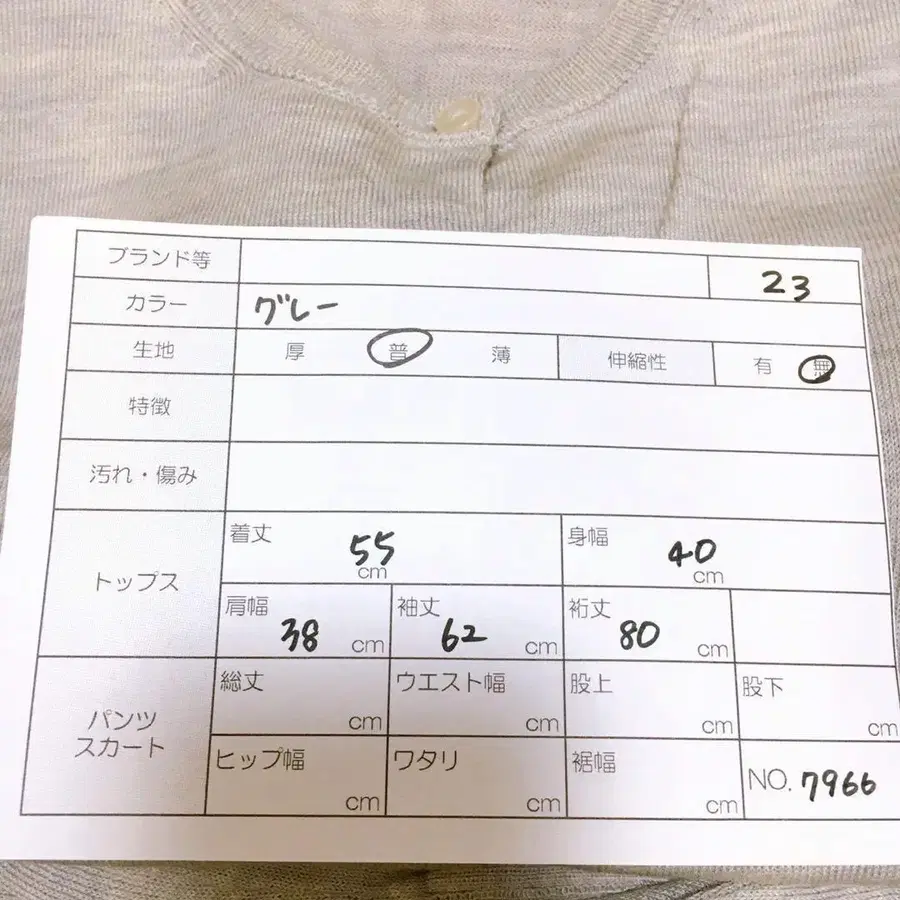 ブランド等 23
カラー グレー
生地 厚 普 薄 伸縮性 有 無
特徴
汚れ・傷み
トップス
着丈 55 cm 身幅 40 cm
肩幅 38 cm 袖丈 62 cm 裄丈 80 cm
パンツ
スカート
総丈 cm ウエスト幅 cm 股上 cm 股下 cm
ヒップ幅 cm ワタリ cm 裾幅 cm NO. 7966